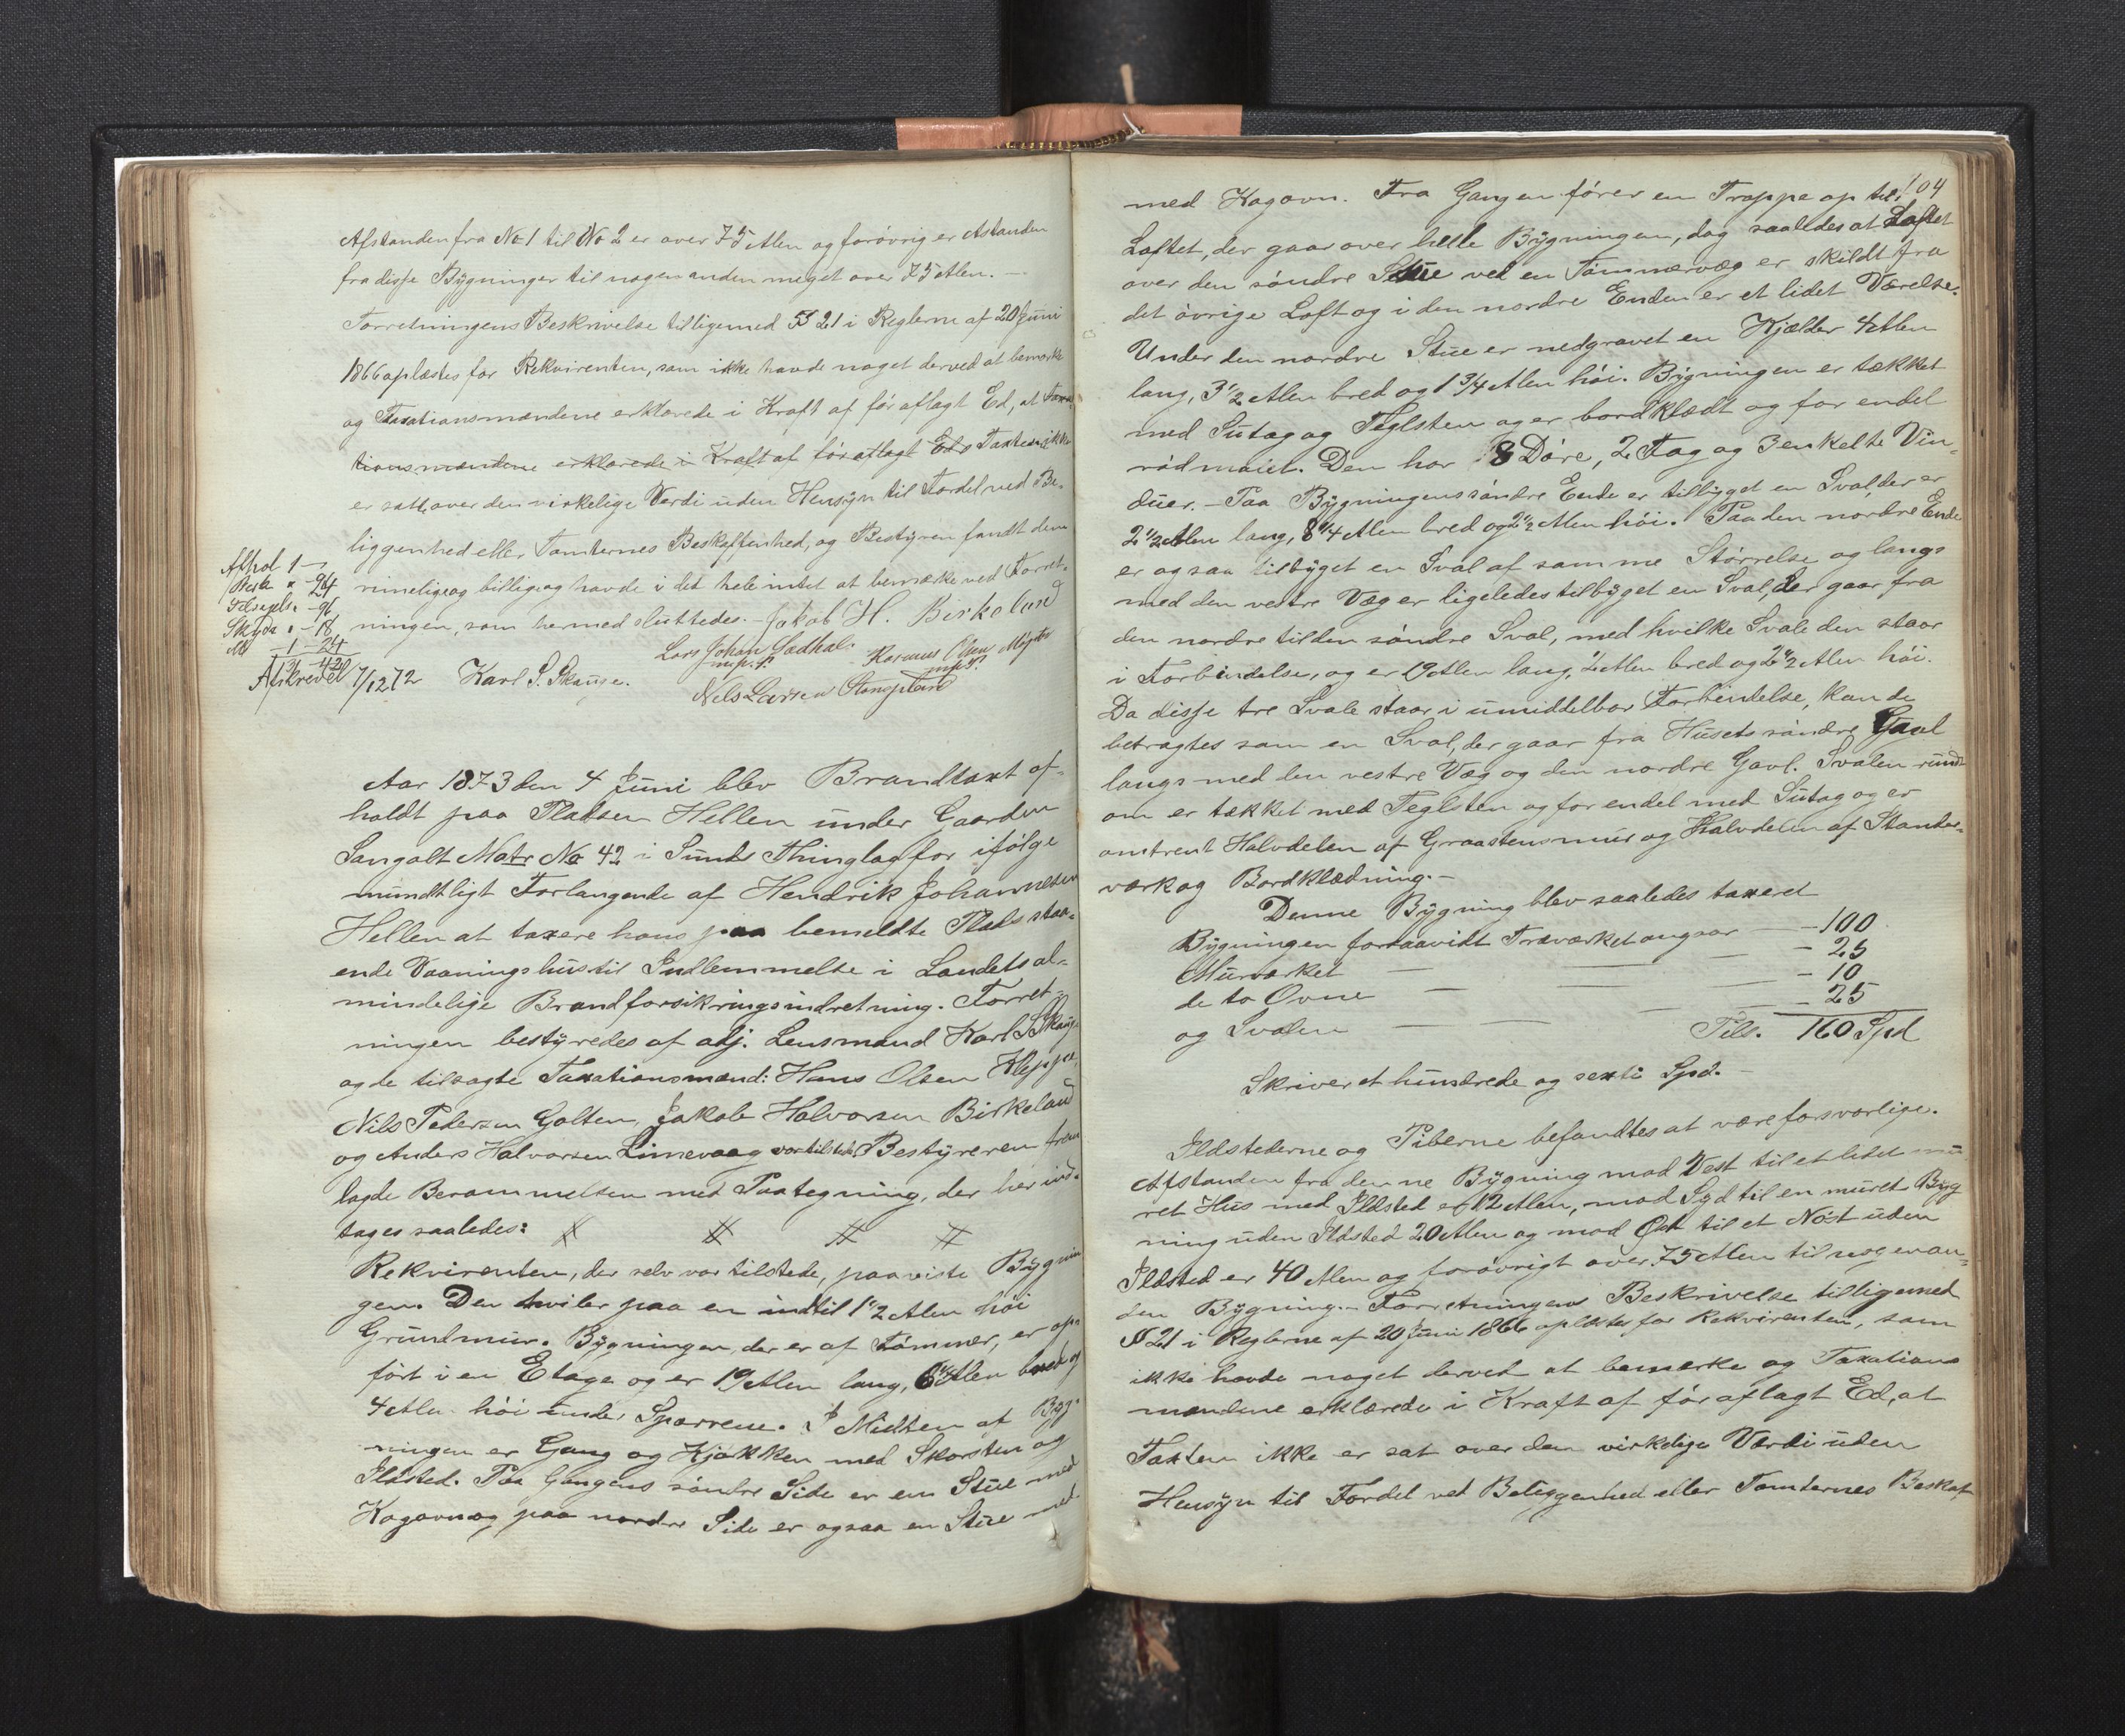 Afstanden fra No 1 til No 2 er over 75 Alen og forøvrig er Astanden
fra disse Bygninger til nogen anden meget over 75 Alen. —
Forretningens Beskrivelse tilligemed § 21 i Reglerne af 20 Juni
1866 oplæstes for Rekvirenten, som ikke havde noget derved at bemærke
og Taxationsmændene erklærede i Kraft af før aflagt Ed, at Taxa-
tionsmændene erklærede i Kraft af før aflagt Ed, Taxten ikke
er satt over den virkelige Verdi uden Hensyn til Fordel ved Be-
liggenhed eller Tomternes Beskaffenhed, og Bestyren fandt den
rimelig og billig og havde i det hele intet at bemærke ved Forret-
ningen, som hermed sluttedes. – Jakob H. Birkeland
Afhol 1 –
Besk " – 24
Tilsigels " – 96
Skyds " – 18
1 – 24
Afskrevet 7/12 72 Karl S. Skauge.
Lars Johan
m.p.P.
Rasmus Olsen
m.p.P.
Nels Larsen
Aar 1873 den 4 Juni blev Brandtaxt af-
holdt paa Pladsen Hellen under Gaarden
Sangolt Matr No 42 i Sunds Thinglag for ifølge
mundtligt Forlangende af Hendrik Johannesen
Hellen at taxere hans paa bemeldte Plads staa-
ende Vaaningshus til Indlemmelse i Landets al-
mindelige Brandforsikringsindretning. Forret-
ningen bestyredes af adj. Lensmand Karl S Skauge
og de tilsagte Taxationsmænd: Hans Olsen Kleppe,
Nils Pedersen Golten, Jakob Halvorsen Birkeland
og Anders Halvorsen Limevaag var tilstede. Bestyreren frem
lagde Berammelsen med Paategning, der her ind-
tages saaledes: # # # #
Rekvirenten, der selv var tilstede, paaviste Bygnin
gen. Den hviler paa en indtil 1 1/2 Alen høi
Grundmur. Bygningen, der er af Tømmer, er op-
ført i en Etage og er 19 Alen lang, 6 1/4 Alen bred og
4 Alen høi under Sparrene. I Midten af Byg-
ningen er Gang og Kjøkken med Skorsten og
Ildsted. Paa Gangens søndre Side er en Stue med
Kogovn og paa nordre Side er ogsaa en Stue med
104
med Kogovn. Fra Gangen fører en Trappe op til
Loftet, der gaar over hele Bygningen, dog saaledes at Loftet
over den søndre Stue ved en Tømmervæg er skildt fra
det øvrige Loft og i den nordre Enden er et lidet Værelse.
Under den nordre Stue er nedgravet en Kjælder 4 Alen
lang, 3 1/2 Alen bred og 1 3/4 Alen høi. Bygningen er tækket
med Sutag og Teglsten og er bordklædt og for endel
rødmalet. Den har 8 Døre, 2 Fag og 3 enkelte Vin-
duer. – Paa Bygningens søndre Ende er tilbygget en Sval, der er
2 1/2 Alen lang, 8 1/4 Alen bred og 2 1/2 Alen høi. Paa den nordre Ende
er ogsaa tilbyget en Sval af samme Størrelse og langs
med den vestre Væg er ligeledes tilbyget en Sval, der gaar fra
den nordre til den søndre Sval, med hvilke Svale den staar
i Forbindelse, og er 19 Alen lang, 2 Alen bred og 2 1/2 Alen høi.
Da disse tre Svale staar i umiddelbar Forbindelse, kan de
betragtes som en Sval, der gaar fra Husets søndre Gavl
langs med den vestre Væg og den nordre Gavl. Svalen rundt
om er tækket med Teglsten og for endel med Sutag og er
omtrent Halvdelen af Graastensmur og Halvdelen af Stander-
værk og Bordklædning. –
Denne Bygning blev saaledes taxeret
Bygningen forsaavidt Træværket angaar — – 100
Murværket — — — – 25
de to Ovne — — — – 10
og Svalen — — — – 25
Tils. 160 Spd
Skriver et hundrede og sexti Spd. –
Ildstederne og Piberne befandtes at være forsvarlige.
Afstanden fra denne Bygning mod Vest til et lidet mu-
ret Hus med Ildsted er 12 Alen, mod Syd til en muret Byg
ning uden Ildsted 20 Alen og mod Øst til et Nøst uden
Ildsted er 40 Alen og forøvrigt over 75 Alen til nogen an-
den Bygning. – Forretningens Beskrivelse tilligemed
§ 21 i Reglerne af 20 Juni 1866 oplæstes for Rekvirenten, som
ikke havde noget derved at bemærke og Taxations
mændene erklærede i Kraft af før aflagt Ed, at
Taxten ikke er sat over den virkelige Værdi uden
Hensyn til Fordel ved Beliggenhed eller Tomternes Beskaf